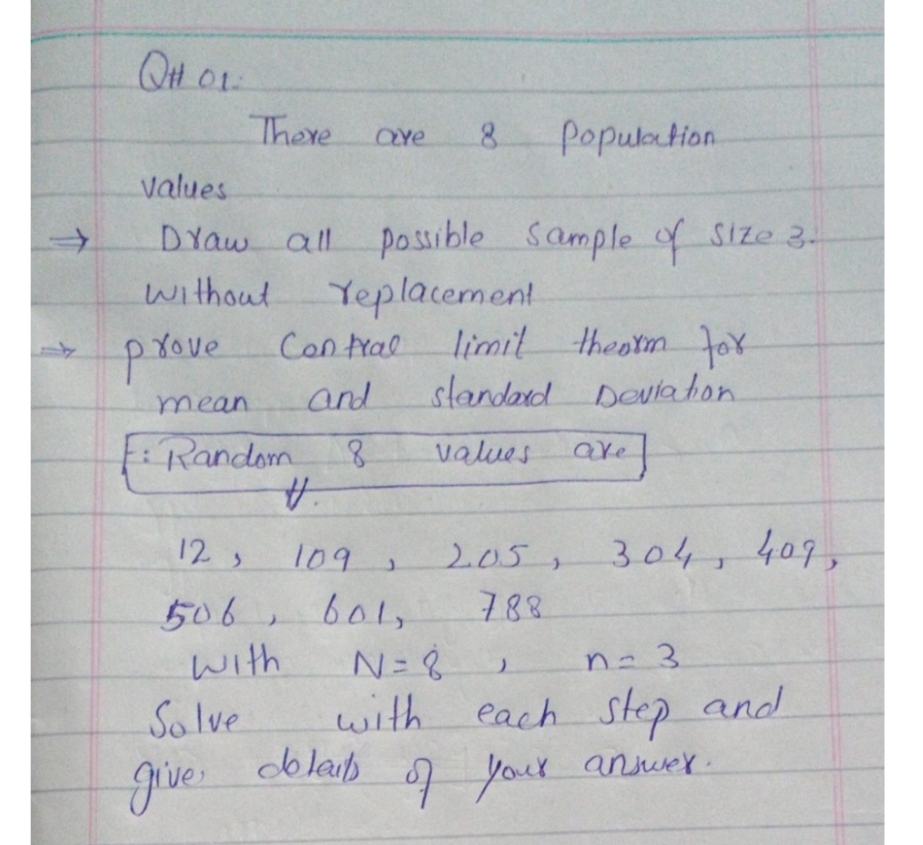 Q# 01:
There are 8 population
values
⇒ Draw all possible sample of size 3.
without replacement
⇒ prove Contral limit theorm for
mean and standard Deviation
: Random 8 values are
⇓.
12, 109, 205, 304, 409,
506, 601, 788
With N=8, n=3
Solve with each step and
give details of your answer.